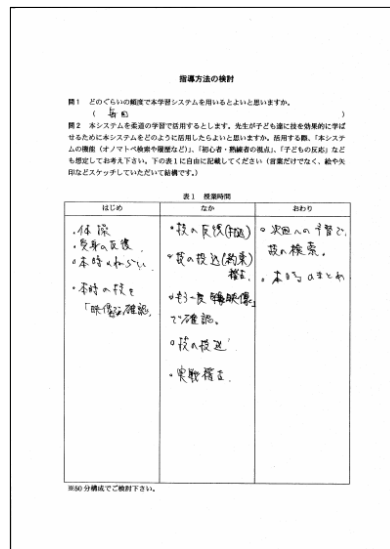 指導方法の検討
問1 どのぐらいの頻度で本学習システムを用いるとよいと思いますか。
( 毎回 )
問2 本システムを柔道の学習で活用するとします。先生が子ども達に技を効果的に学ば
せるために本システムをどのように活用したらよいと思いますか。活用する際、「本システ
ムの機能（オノマトペ検索や履歴など）」、「初心者・熟練者の視点」、「子どもの反応」など
も想定してお考え下さい。下の表1に自由に記載してください（言葉だけでなく、絵や矢
印などスケッチしていただいて結構です。）
表1 授業時間
はじめ
・体操
・受身の反復
・本時のねらい
・本時の技を
「映像」で確認。
なか
・技の反復
・技の投込(約束)
稽古
・もう一度「映像」
で確認。
・技の投込
・実戦稽古
おわり
・次回への予習で、
技の検索。
・本時のまとめ
※50分構成でご検討下さい。